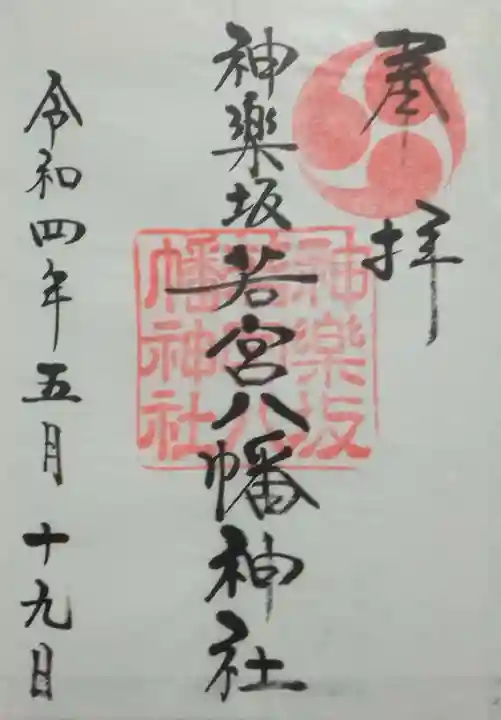 奉拝
神樂坂若宮八幡神社
神樂坂
若宮八
幡神社
令和四年五月十九日